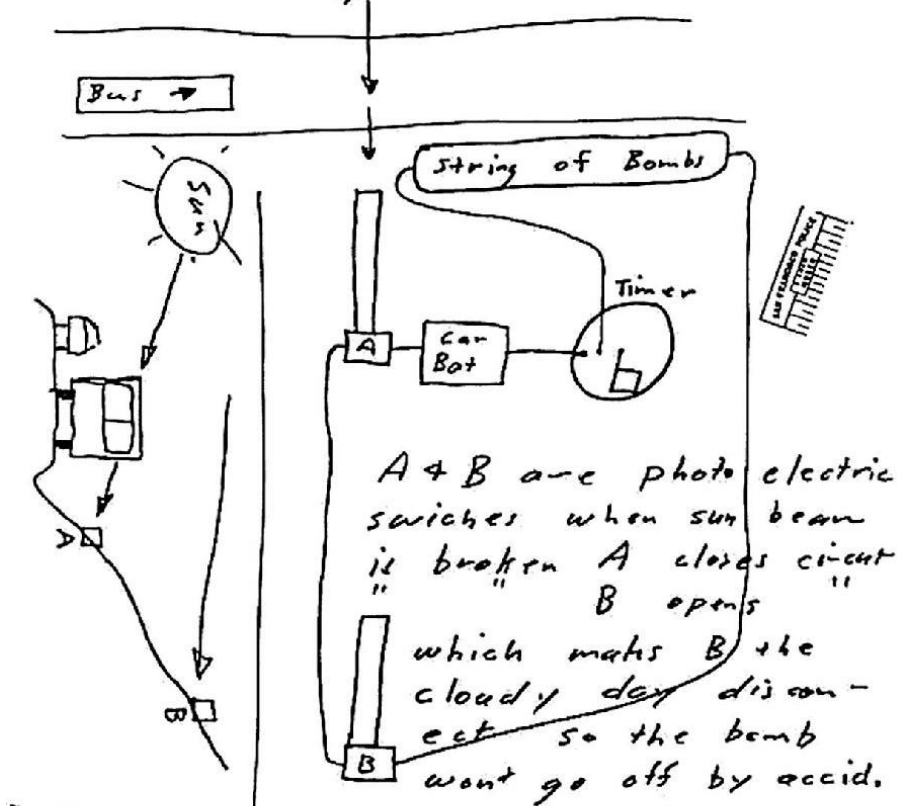 Bus →
Sun
String of Bombs
Timer
A
Car
Bat
A & B are photo electric
swiches when sun beam
is broken A closes circut
" " B opens "
which maks B the
cloudy day discon-
ect so the bomb
wont go off by accid.
B
A
B